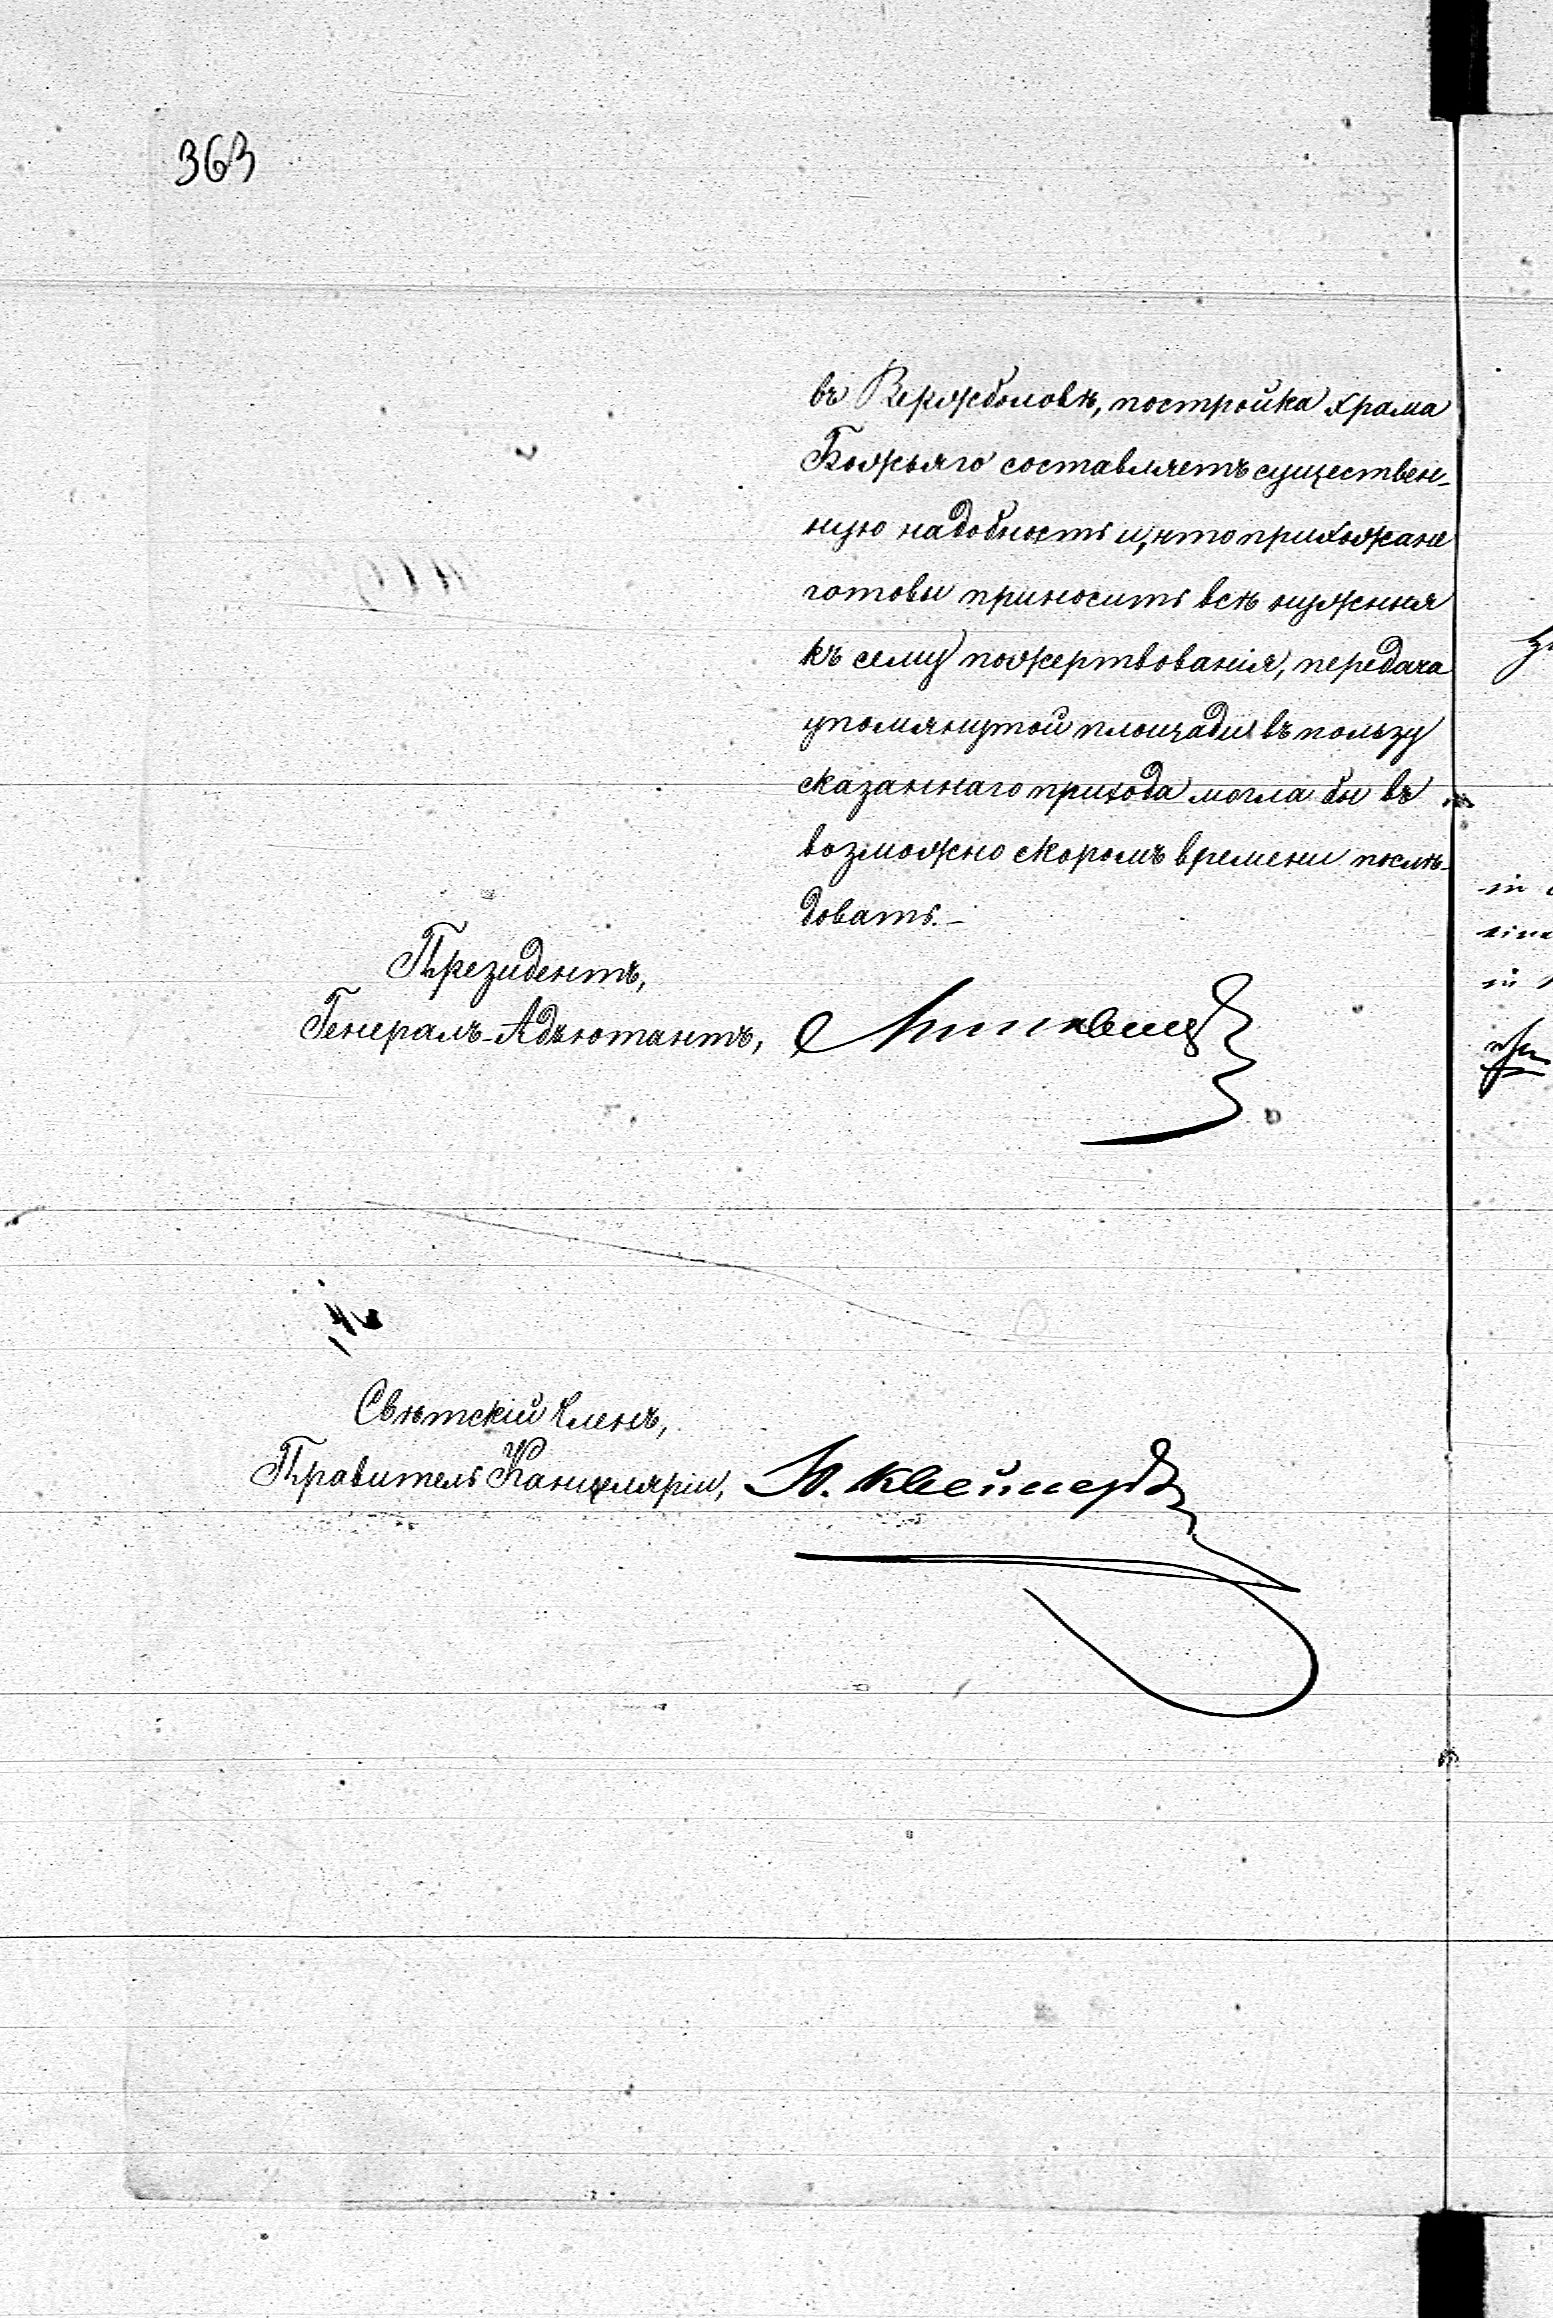 363
въ Вержболовѣ, постройка храма
Божьяго составляетъ существен-
ную надобность и, что прихожане
готовы приносить всѣ нужныя
къ сему пожертвованія, передача
упомянутой площади въ пользу
сказаннаго прихода могла бы въ
возможно скоромъ времени послѣ-
довать.-
Президентъ,
Генералъ-Адъютантъ,
Свѣтскій Членъ,
Правитель Канцеляріи, Ю.
in
in